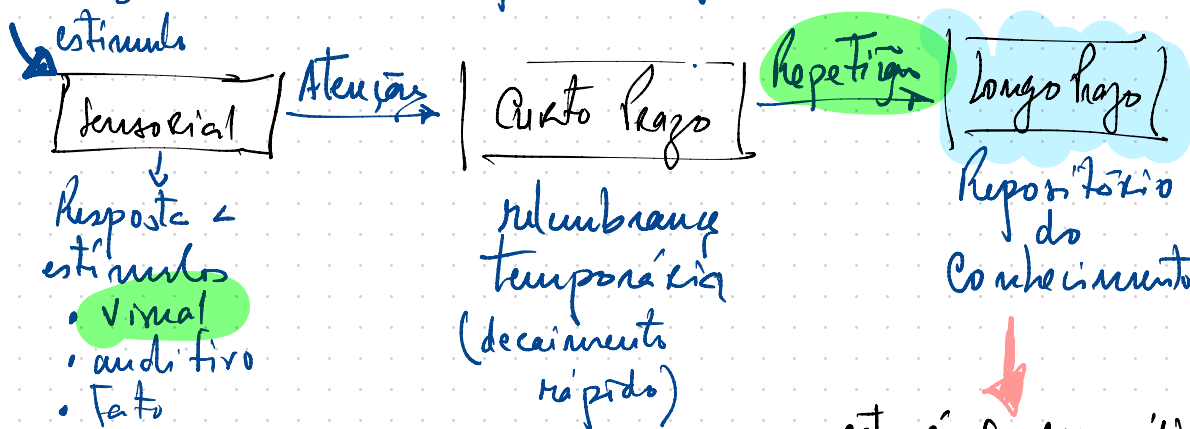 estímulo
Sensorial
Atenção
Curto Prazo
Repetição
Longo Prazo
Resposta a
estímulos
• Visual
• auditivo
• Tato
relembrança
temporária
(decaimento
rápido)
Repositório
do
Conhecimento